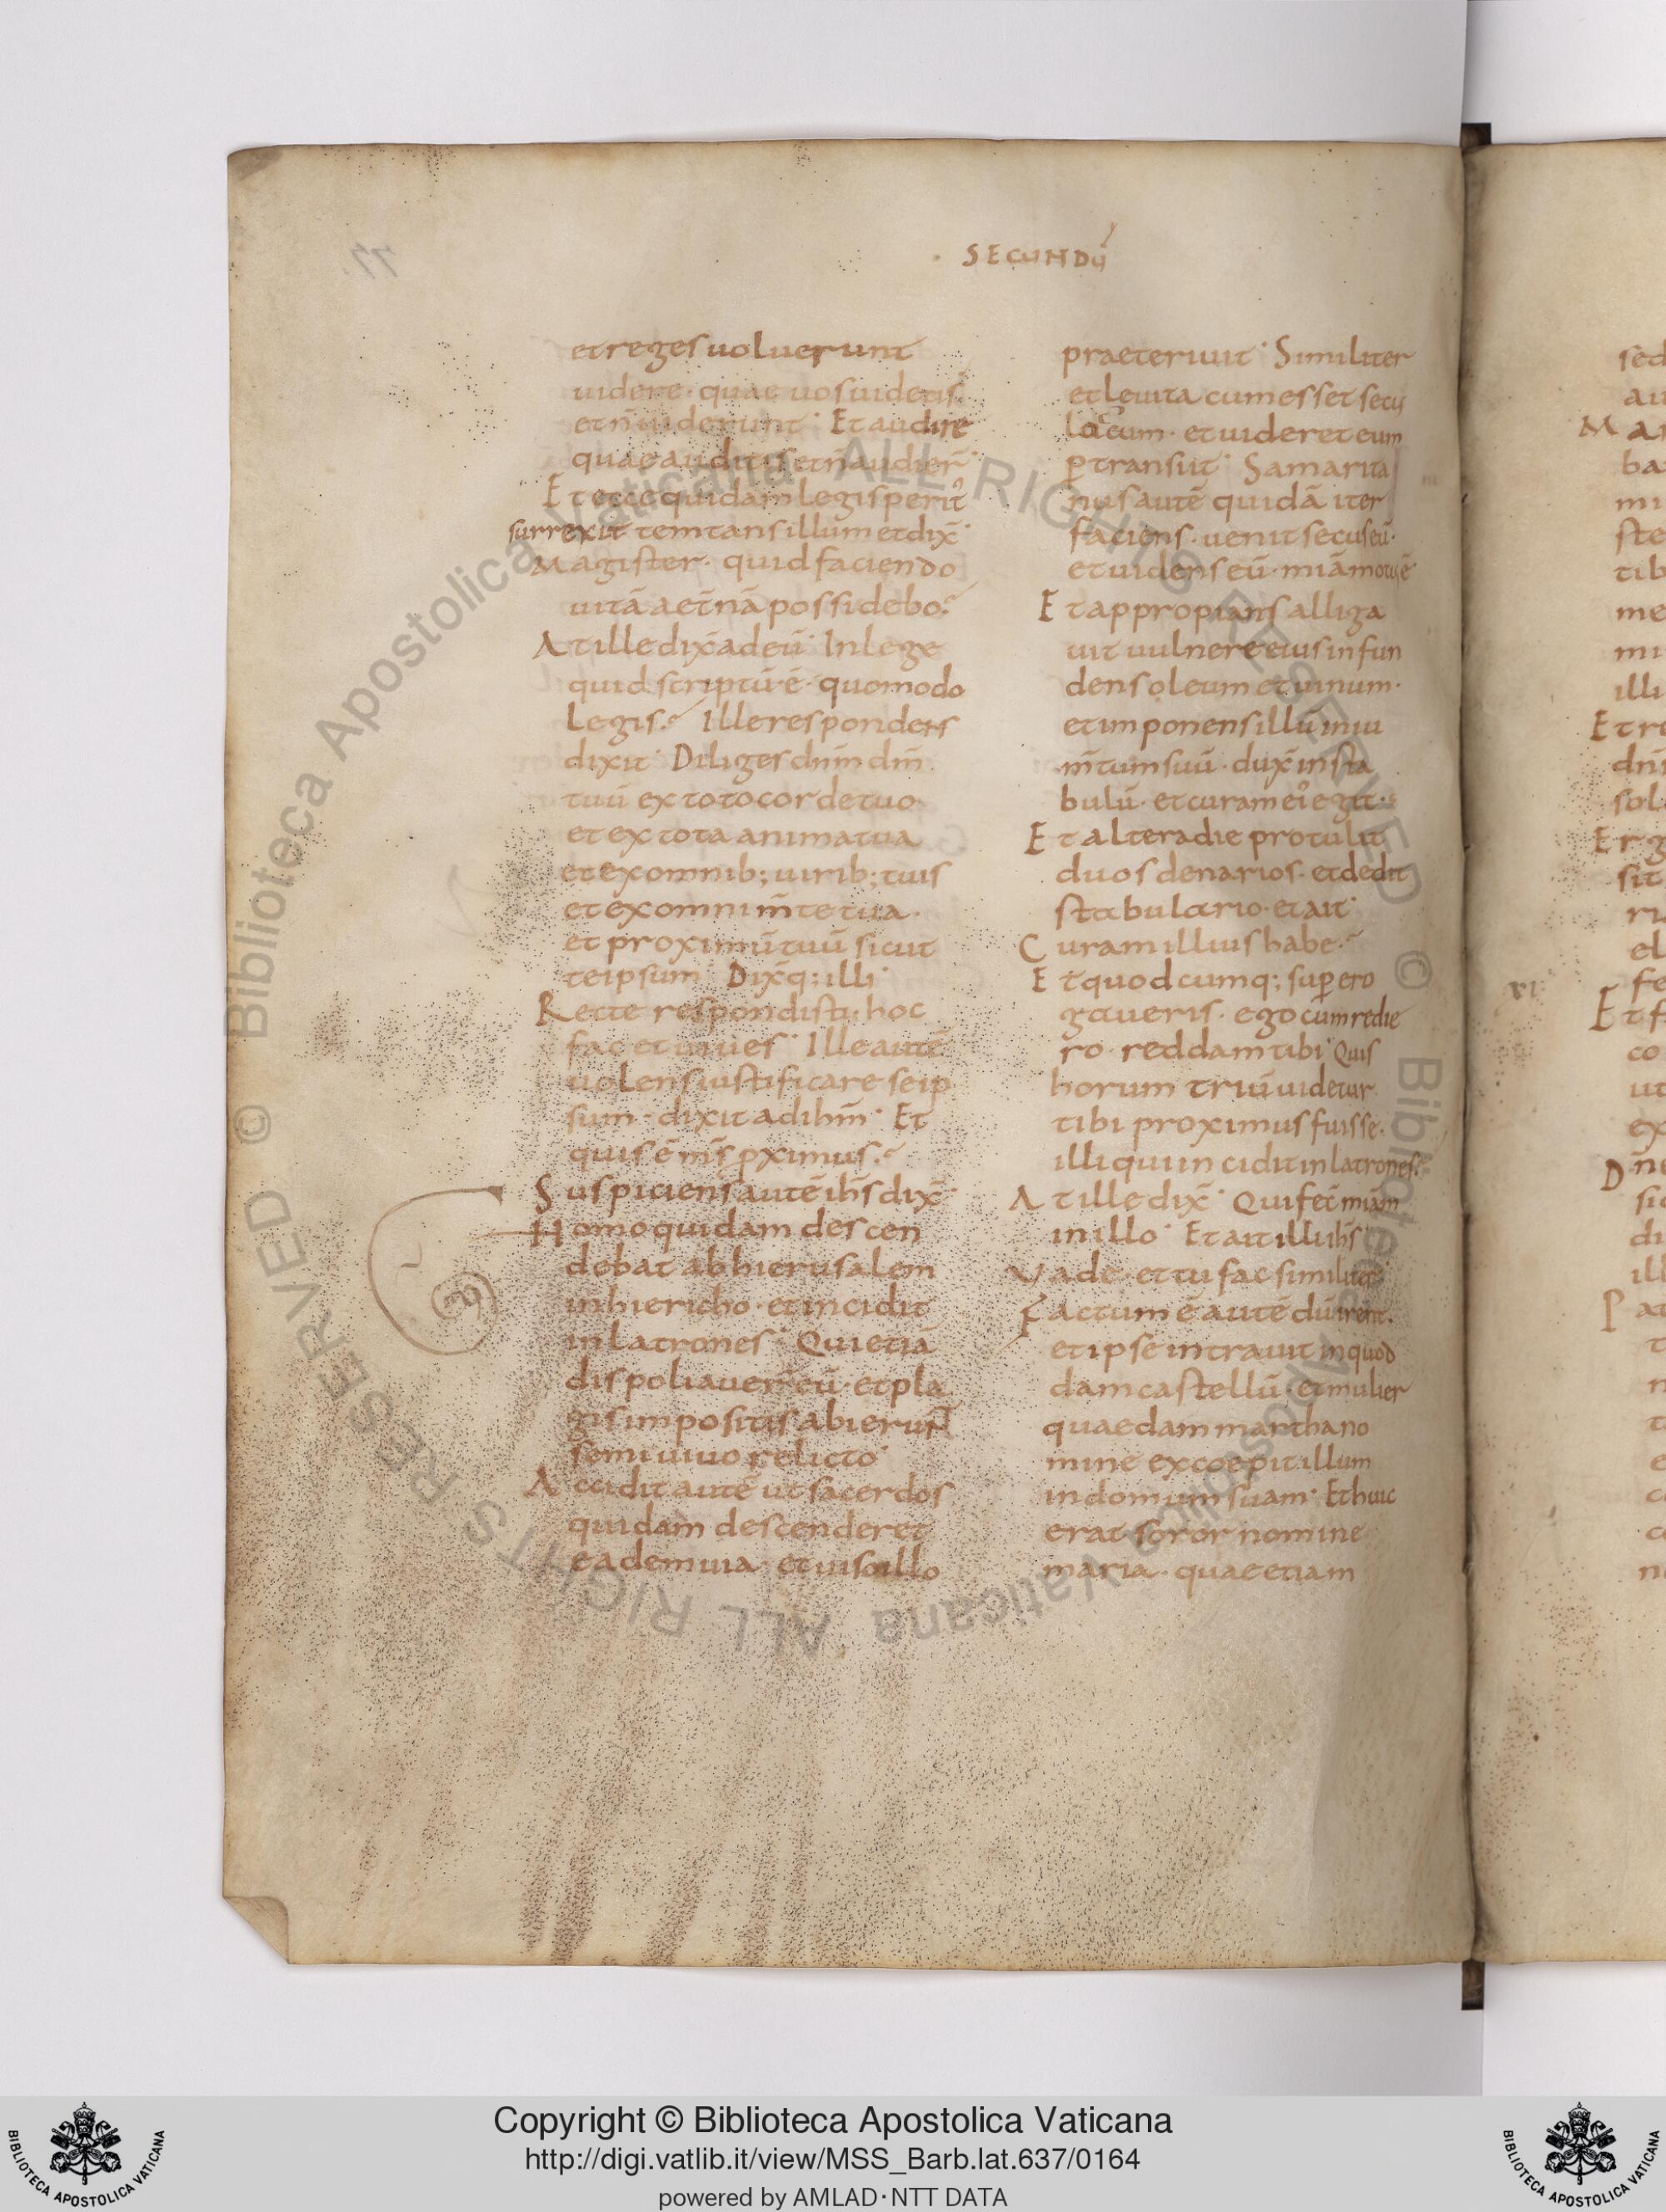 SECUNDŪ
et reges uoluerunt
uidere· quae uos uidetis·
et n̄ uiderunt· Et audire
quae auditis et n̄ audier̄·
Et ecce quidam legisperit᾽
surrexit temtans illum et dix̄·
Magister· quid faciendo
uitā aet̄nā possidebo·
At ille dix̄ ad eū· In lege
quid scriptū ē· quomodo
legis· Ille respondens
dixit· Diliges dn̄m dm̄
tuū ex toto corde tuo
et ex tota anima tua
et ex omnib; uirib; tuis
et ex omni m̄te tua·
et proximū tuū sicut
teipsum· Dix̄q; illi·
Recte respondisti· hoc
fac et uiues· Ille autē
uolens iustificare seip
sum· dixit ad ihm̄· Et
quis ē m̄s ꝓximus·
Suspiciens autē ih̄s dix̄·
Homo quidam descen
debat ab hierusalem
in hiericho· et incidit
in latrones· Qui etiā
dispoliauer̄ eū· et pla
gis impositis abierunt
semiuiuo relicto·
Accidit autē ut sacerdos
quidam descenderet
eadem uia· et uiso illo
praeteriuit· Similiter
et leuita cum esset secus
locum· et uideret eum
ꝑtransiit· Samarita
nus autē quidā iter
faciens· uenit secus eū·
et uidens eū· mīa motus ē
Et approprians alliga
uit uulnere eius infun
dens oleum et uinum·
et imponens illū in iu
m̄tum suū· dux̄ in sta
bulū· et curam ei᾽ egit·
Et altera die protulit
duos denarios· et dedit
stabulario· et ait·
Curam illius habe·
Et quodcumq; suꝑero
gaueris· ego cum redie
ro· reddam tibi· Quis
horum triū uidetur
tibi proximus fuisse·
illi qui incidit in latrones·
At ille dix̄· Qui fec̄ mīam
in illo· Et ait illi ih̄s
Vade· et tu fac similiter
Factum ē autē dū irent·
et ipse intrauit in quod
dam castellū· et mulier
quaedam martha no
mine excoepit illum
in domum suam· Et huic
erat soror nomine
maria· quae etiam
xi
Copyright © Biblioteca Apostolica Vaticana
http://digi.vatlib.it/view/MSS_Barb.lat.637/0164
powered by AMLAD·NTT DATA